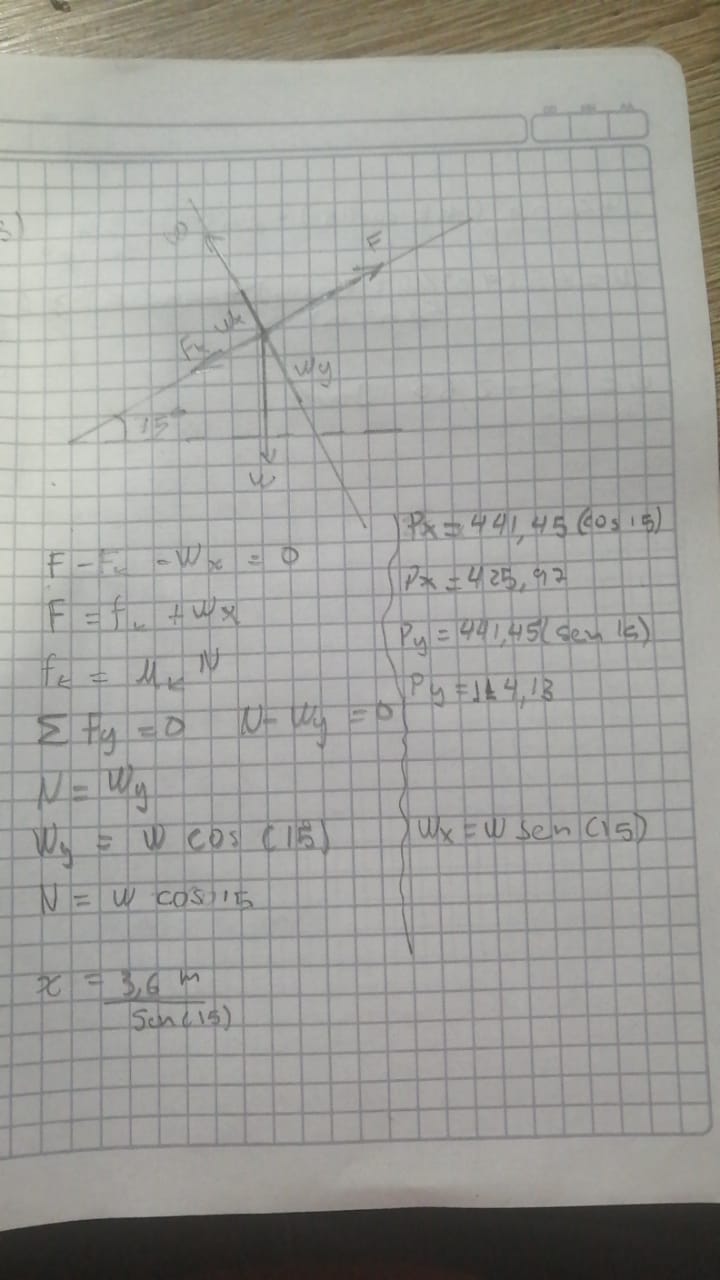 3)
F
Fk
Wx
Wy
15°
W
F - Fk - Wx = 0
F = fk + Wx
fk = Mk N
Σ Fy = 0 N - Wy = 0
N = Wy
Wy = W cos (15)
N = W cos 15
x = 3,6 m
Sen(15)
Px = 441,45 (cos 15)
Px = 425,97
Py = 441,45 (sen 15)
Py = 114,13
Wx = W sen (15)